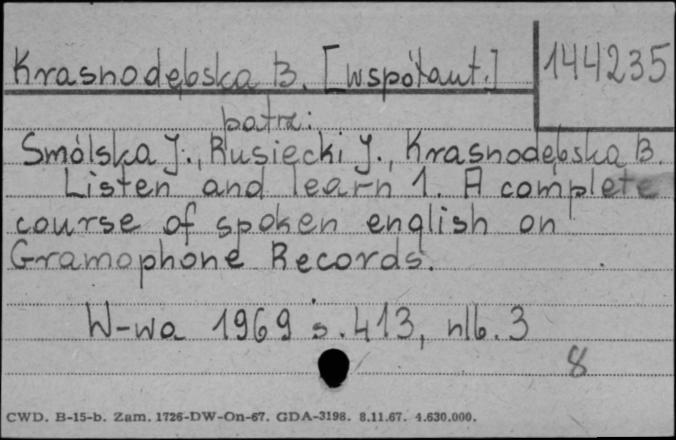 Krasnodębska B. [współaut.]
144235
patrz:
Smólska J., Rusiecki J., Krasnodębska B.
Listen and learn 1. A complete
course of spoken english on
Gramophone Records.
W-wa 1969 s. 413, nlb. 3
8
CWD. B-15-b. Zam. 1726-DW-On-67. GDA-3198. 8.11.67. 4.630.000.